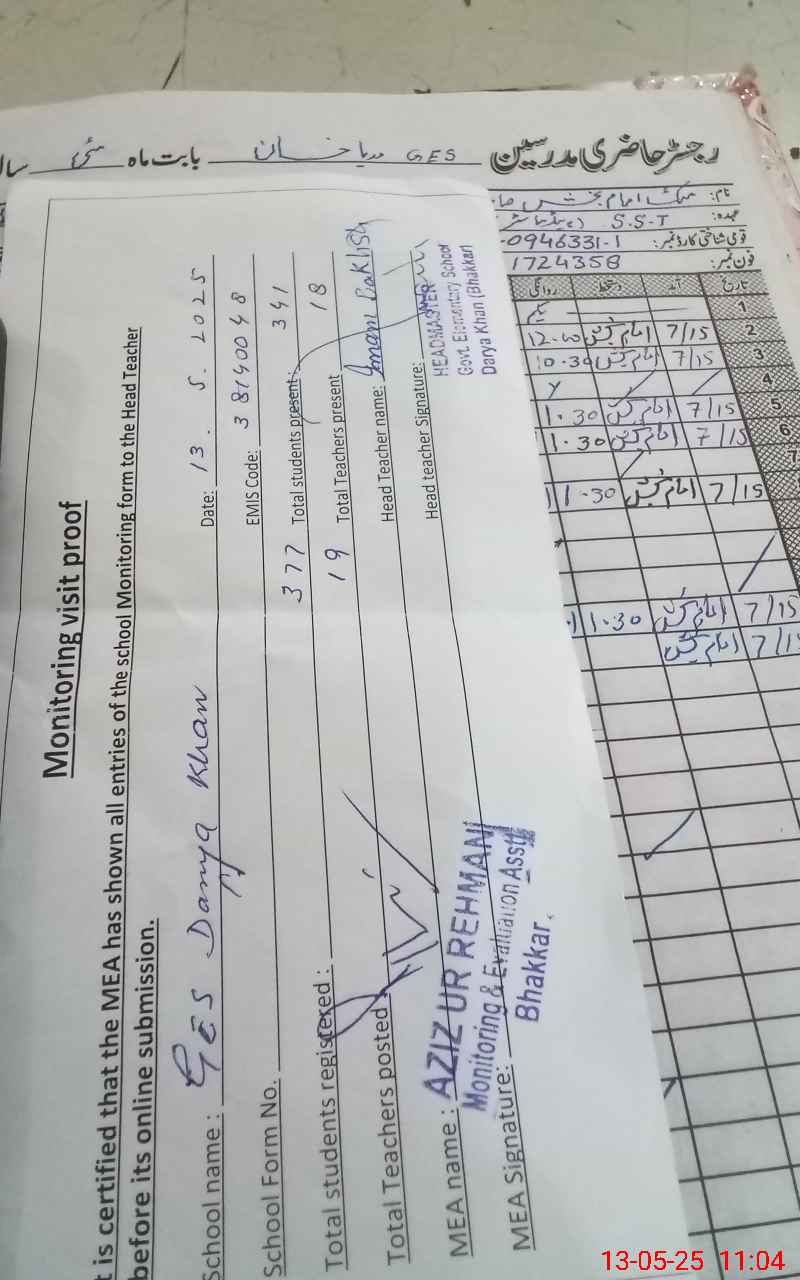 رجسٹر حاضری مدرسین GES دریا خان بابت ماہ مئی سال
نام: ملک امام بخش
عہدہ: S.S.T
قومی شناختی کارڈ نمبر: -0946331-1
فون نمبر: 1724358
تاریخ آمد دستخط روانگی
1
2 7/15 امام بخش 12.40
3 7/15 امام بخش 10.30
4
5 7/15 امام بخش 1.30
6 7/15 امام بخش 1.30
7
7/15 امام بخش 11.30
7/15 امام بخش 11.30
7/15 امام بخش
Monitoring visit proof
t is certified that the MEA has shown all entries of the school Monitoring form to the Head Teacher
before its online submission.
School name : GES Darya Khan Date: 13. 5. 2025
School Form No. EMIS Code: 38140048
Total students registered : 377 Total students present: 341
Total Teachers posted 19 Total Teachers present 18
MEA name : AZIZ UR REHMAN Head Teacher name: Imam Bakhsh
Monitoring & Evaluation Asstt
Bhakkar.
MEA Signature: Head teacher Signature:
HEADMASTER
Govt. Elementary School
Darya Khan (Bhakkar)
13-05-25 11:04